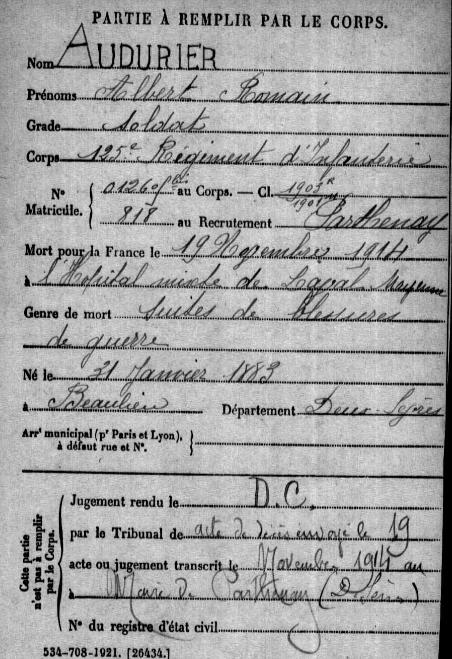 PARTIE À REMPLIR PAR LE CORPS.
Nom AUDURIER
Prénoms Albert Romain
Grade Soldat
Corps 125e Régiment d'Infanterie
N° Matricule. { 01260 au Corps. — Cl. 1903
1901
818 au Recrutement Parthenay
Mort pour la France le 19 Novembre 1914
à l'Hôpital mixte de Laval Mayenne
Genre de mort Suites de blessures
de guerre
Né le 31 Janvier 1883
à Beaulieu Département Deux-Sèvres
Arrt municipal (pr Paris et Lyon), }
à défaut rue et N°.
Cette partie n'est pas à remplir par le Corps.
Jugement rendu le D.C.
par le Tribunal de acte de décès envoyé le 19
acte ou jugement transcrit le Novembre 1914 au
à Maire de Parthenay (D. Sèvres)
N° du registre d'état civil
534-708-1921. [26434.]